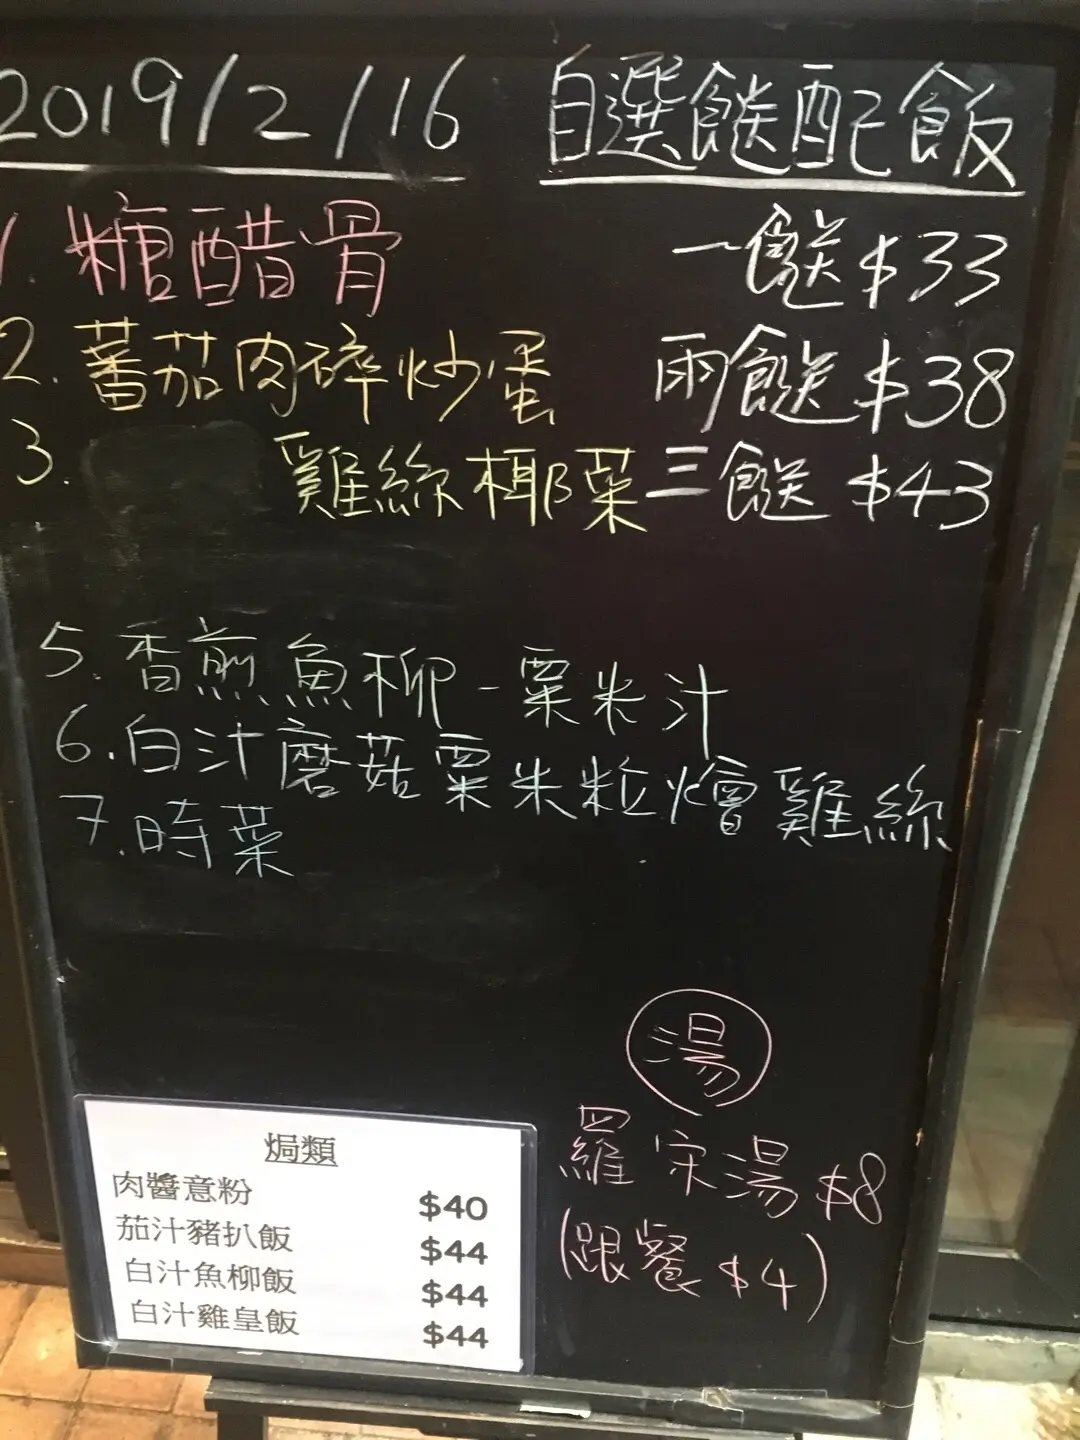 2019/2/16 自選餸配飯
1. 糖醋骨 一餸$33
2. 蕃茄肉碎炒蛋 兩餸$38
3. 雞絲椰菜 三餸 $43
5. 香煎魚柳-粟米汁
6. 白汁磨菇粟米粒燴雞絲
7. 時菜
湯
羅宋湯 $8
(跟餐 $4)
焗類
肉醬意粉 $40
茄汁豬扒飯 $44
白汁魚柳飯 $44
白汁雞皇飯 $44